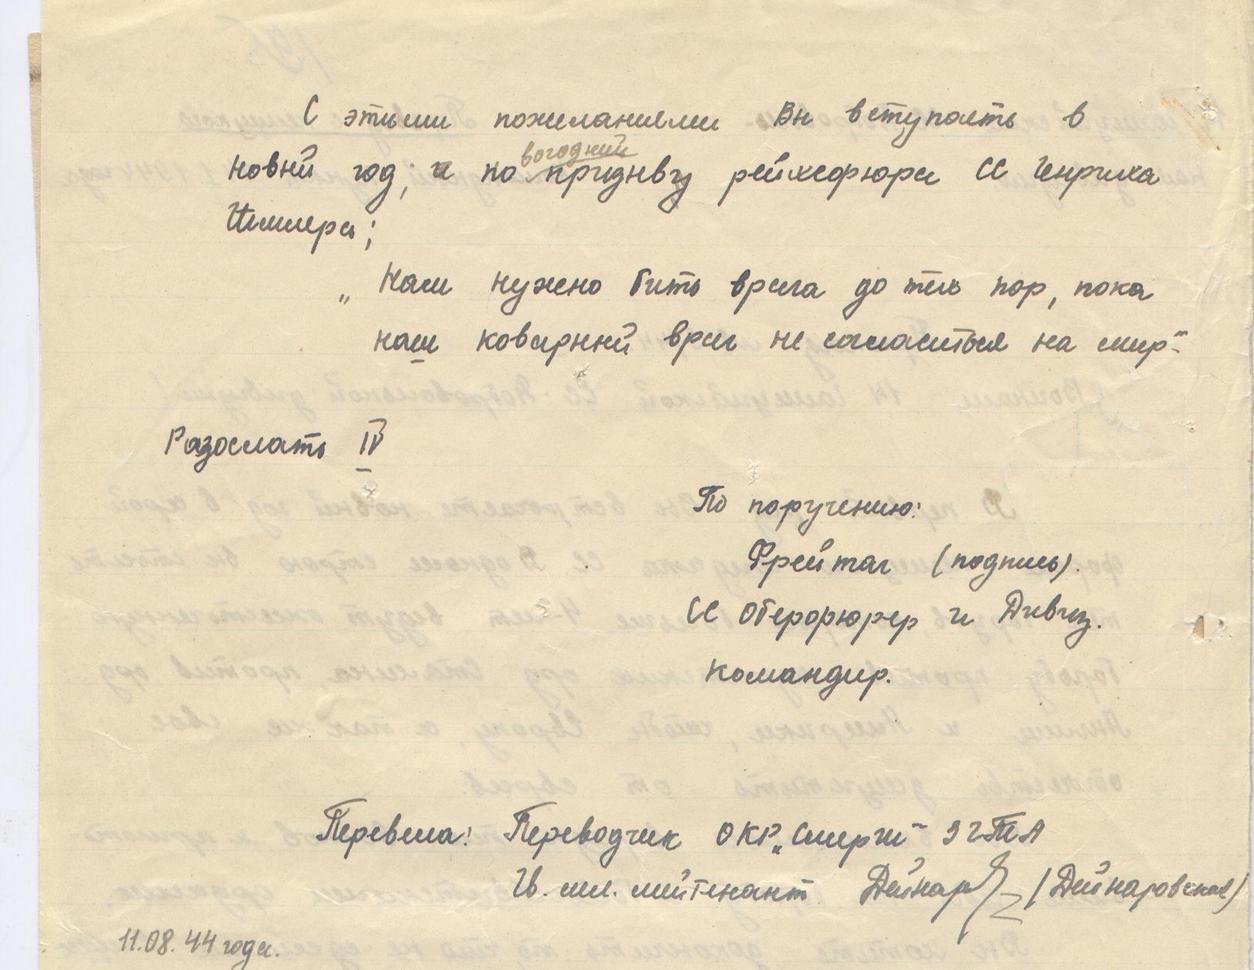 С этими пожеланиями Вы вступаеть в
новый год, и по новогодний приднву рейхсфюрера СС Генриха
Гимлера;
„Нам нужно бить врага до тех пор, пока
наш коварный враг не согласиться на мир“
Разослать IV
По поручению:
Фрейтаг (подпись).
СС Оберфюрер и Дивиз.
командир.
Перевела: Переводчик ОКР „Смерш“ 3 гв ТА
Гв. мл. лейтенант Дейнар (Дейнаровская)
11.08.44 года.